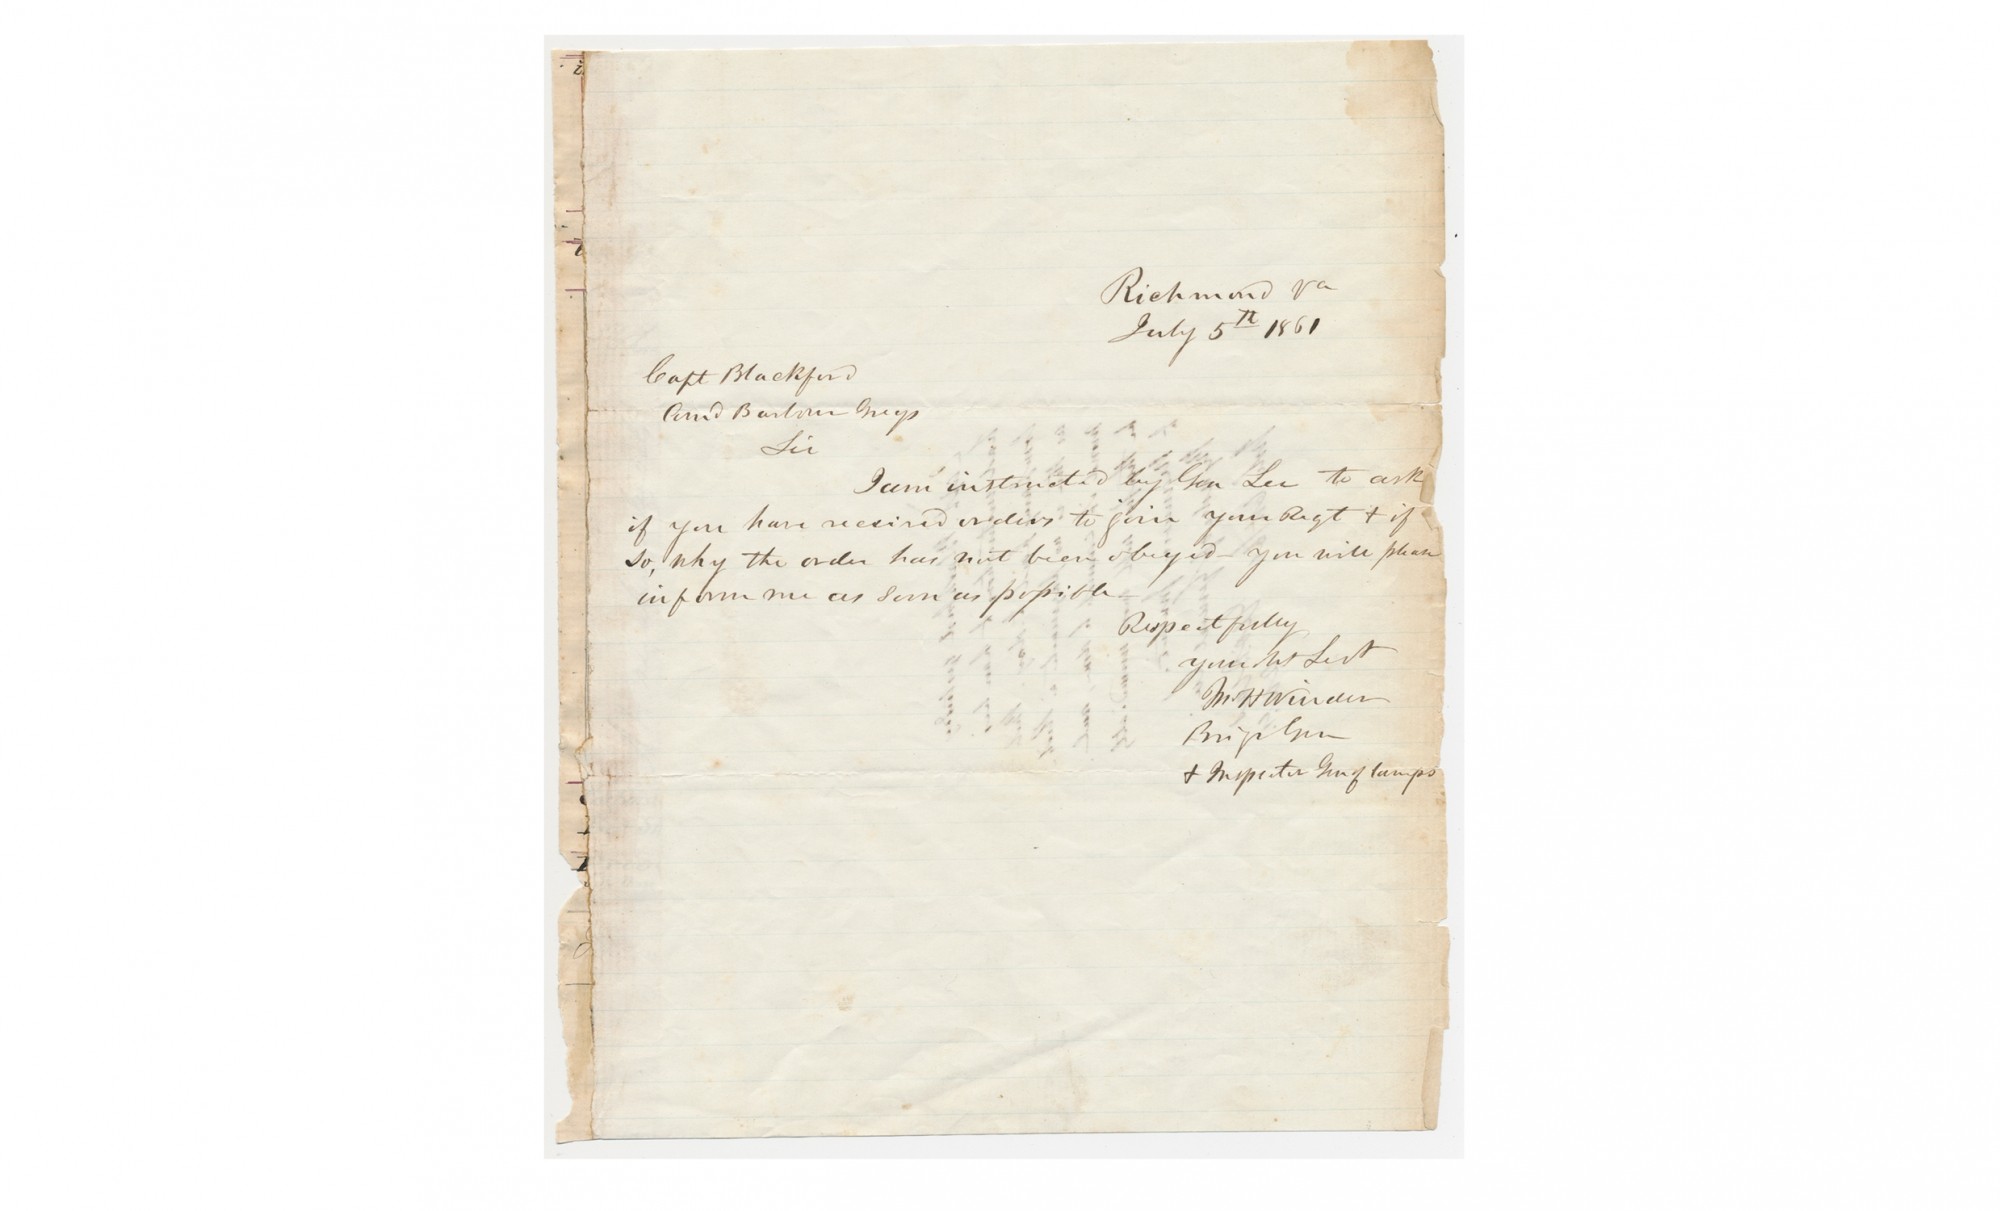 Richmond Va
July 5th 1861
Capt Blackford
Comd Barbour Greys
Sir
I am instructed by Gen Lee to ask
if you have received orders to join your Regt + if
so, why the order has not been obeyed - you will please
inform me as soon as possible -
Respectfully
your obt Sevt
Jno H Winder
Brig Gen
+ Inspector Gen of Camps